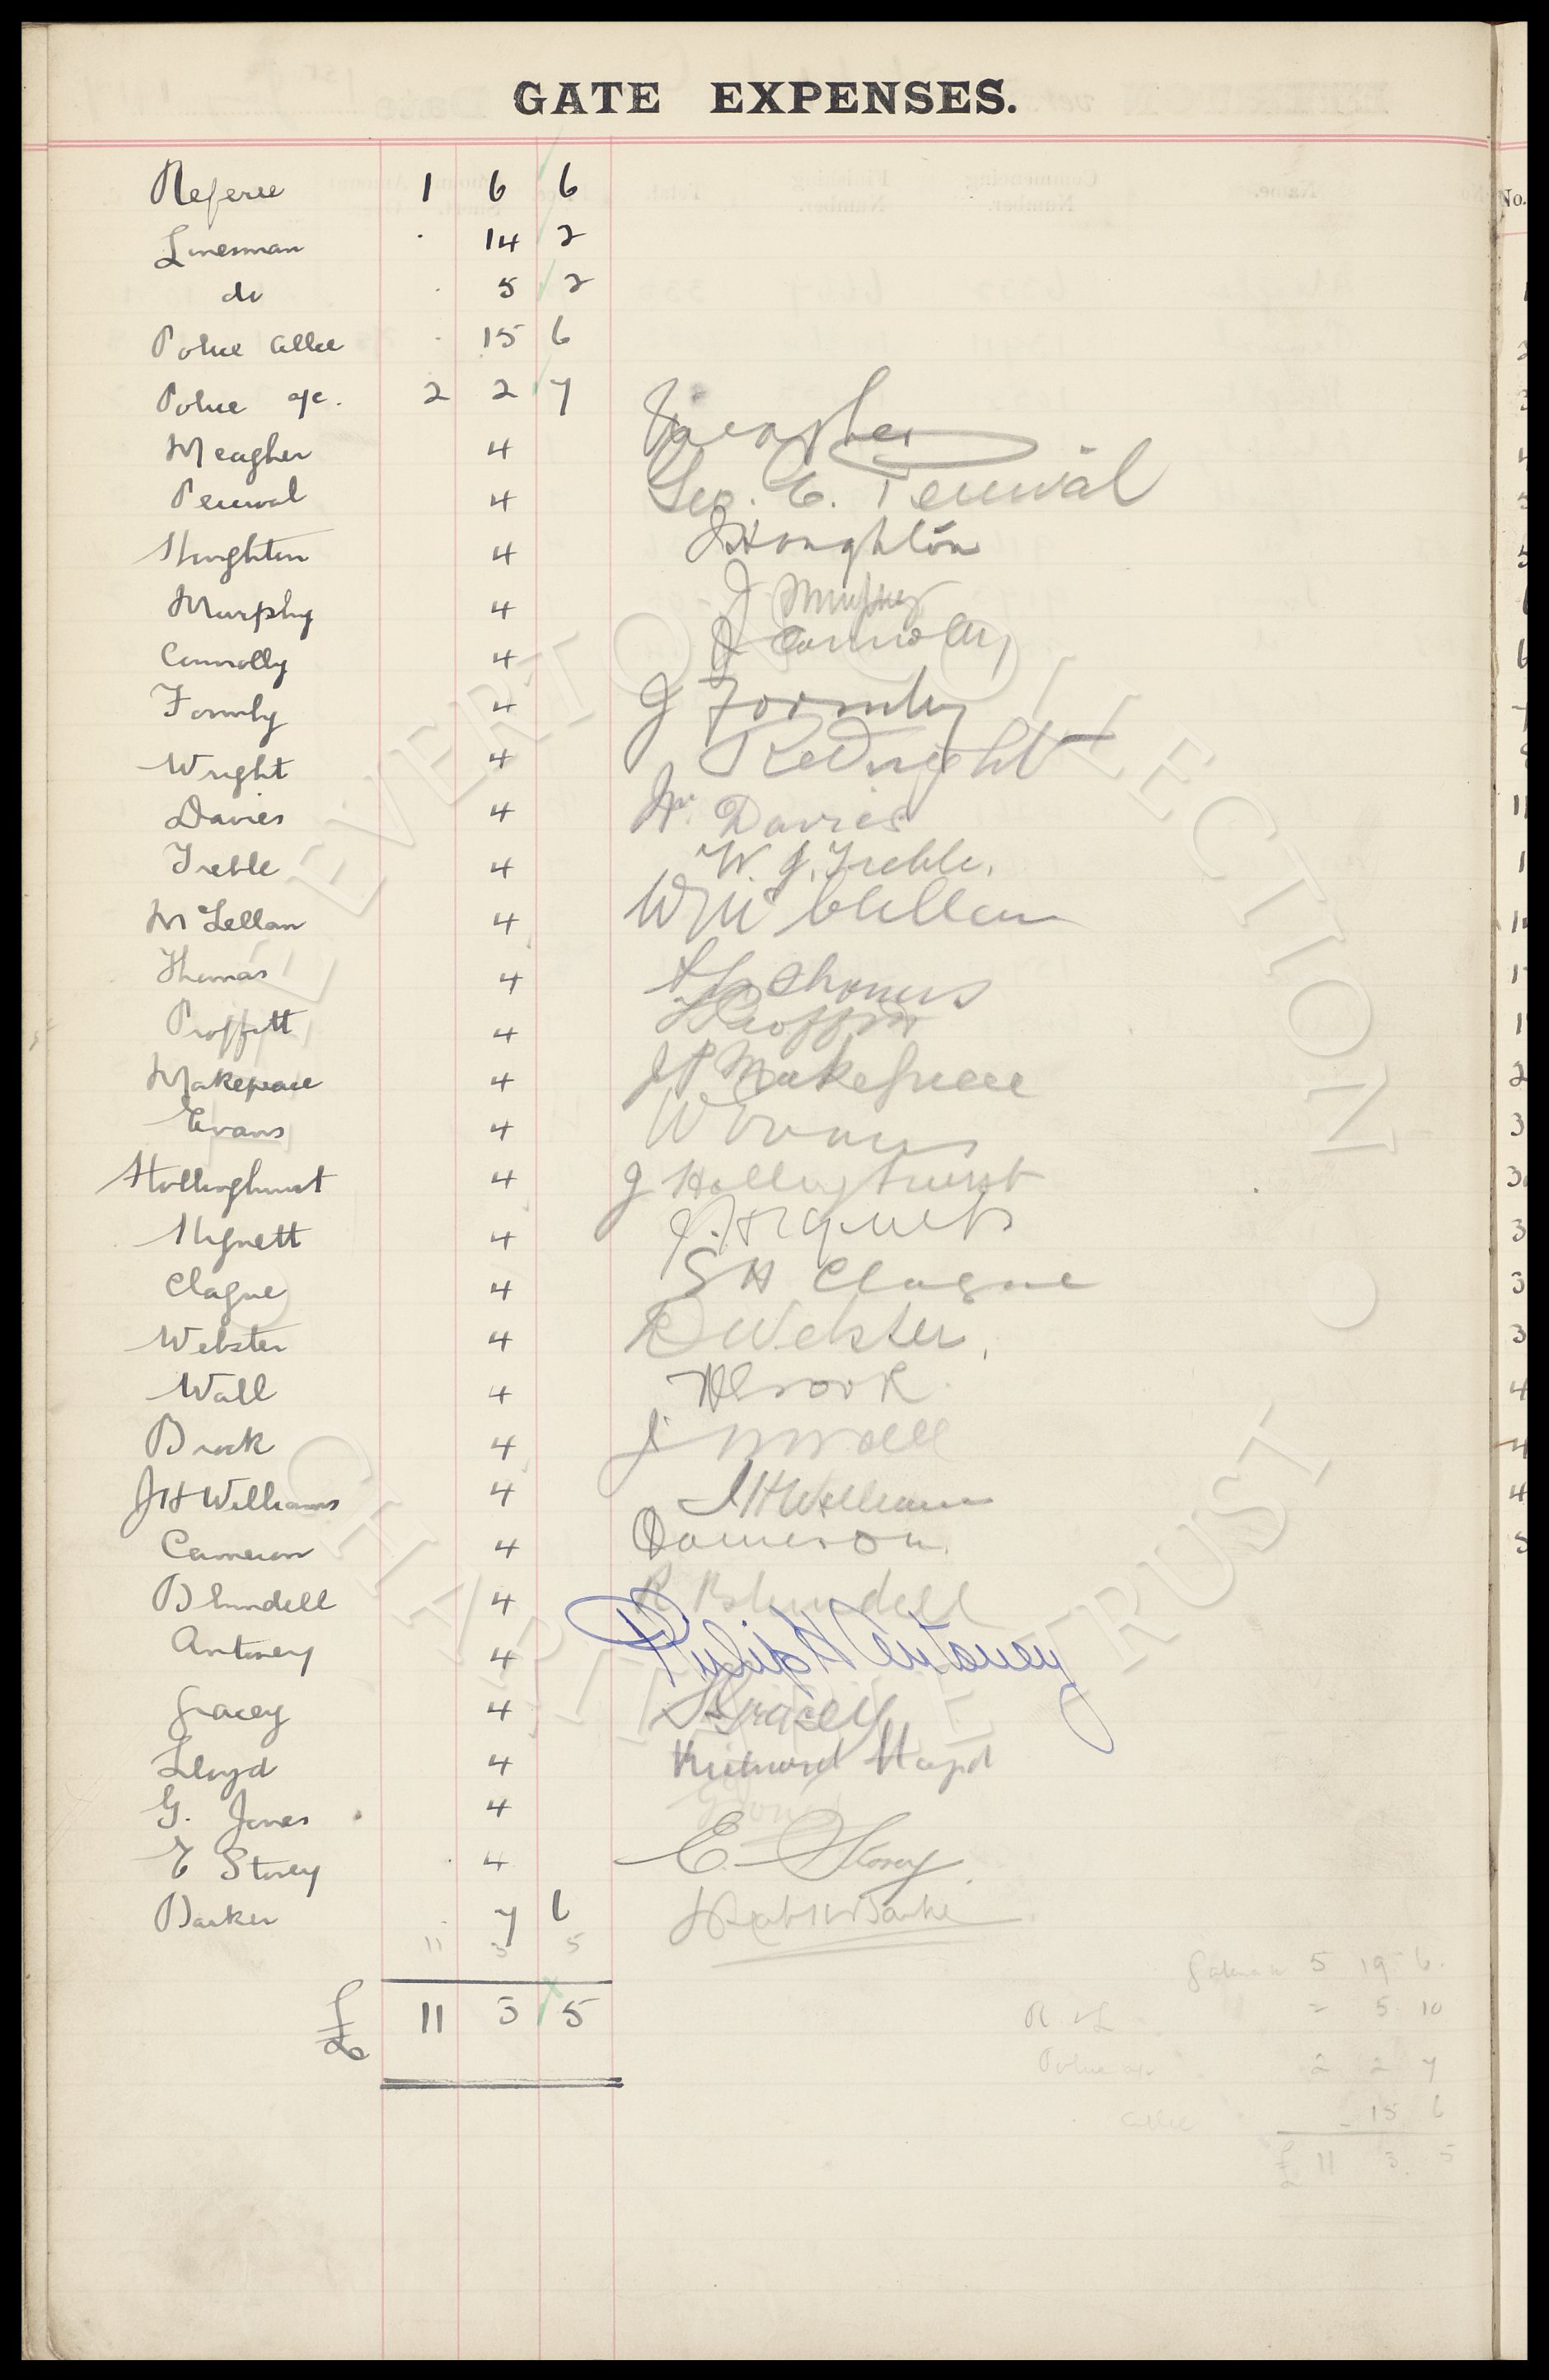 GATE EXPENSES.
Referee 1 6 6
Linesman . 14 2
do . 5 2
Police Allce . 15 6
Police a/c. 2 2 7
Meagher 4 Meagher
Percival 4 Geo. C. Percival
Houghton 4 J Houghton
Murphy 4 J Murphy
Connolly 4 J Connolly
Formby 4 J Foormby
Wright 4 R Wright
Davies 4 Davies
Treble 4 W. J. Treble.
McLellan 4 W Mc Clellan
Thomas 4 Thomas
Proffitt 4 Proffitt
Makepeace 4 J P Makepeace
Evans 4 W Evans
Hollinghurst 4 J Hollinghurst
Hignett 4 J. Hignett
Clague 4 S H Clague
Webster 4 Webster.
Wall 4 H Brook
Brock 4 J Wall
J H Williams 4 J H Williams
Cameron 4 Cameron.
Blundell 4 R Blundell
Antoney 4 Philip H Antoney
Gracey 4 Gracey
Lloyd 4 Richard Lloyd
G. Jones 4 G Jones
E Storey . 4 E. Storey
Barker . 7 6 Barker
11 3 5
£ 11 3 5
Gatemen 5 19 6.
R & L = 5 10
Police a/c 2 2 7
Allce - 15 6
£ 11 3 5
No.
THE EVERTON COLLECTION CHARITABLE TRUST